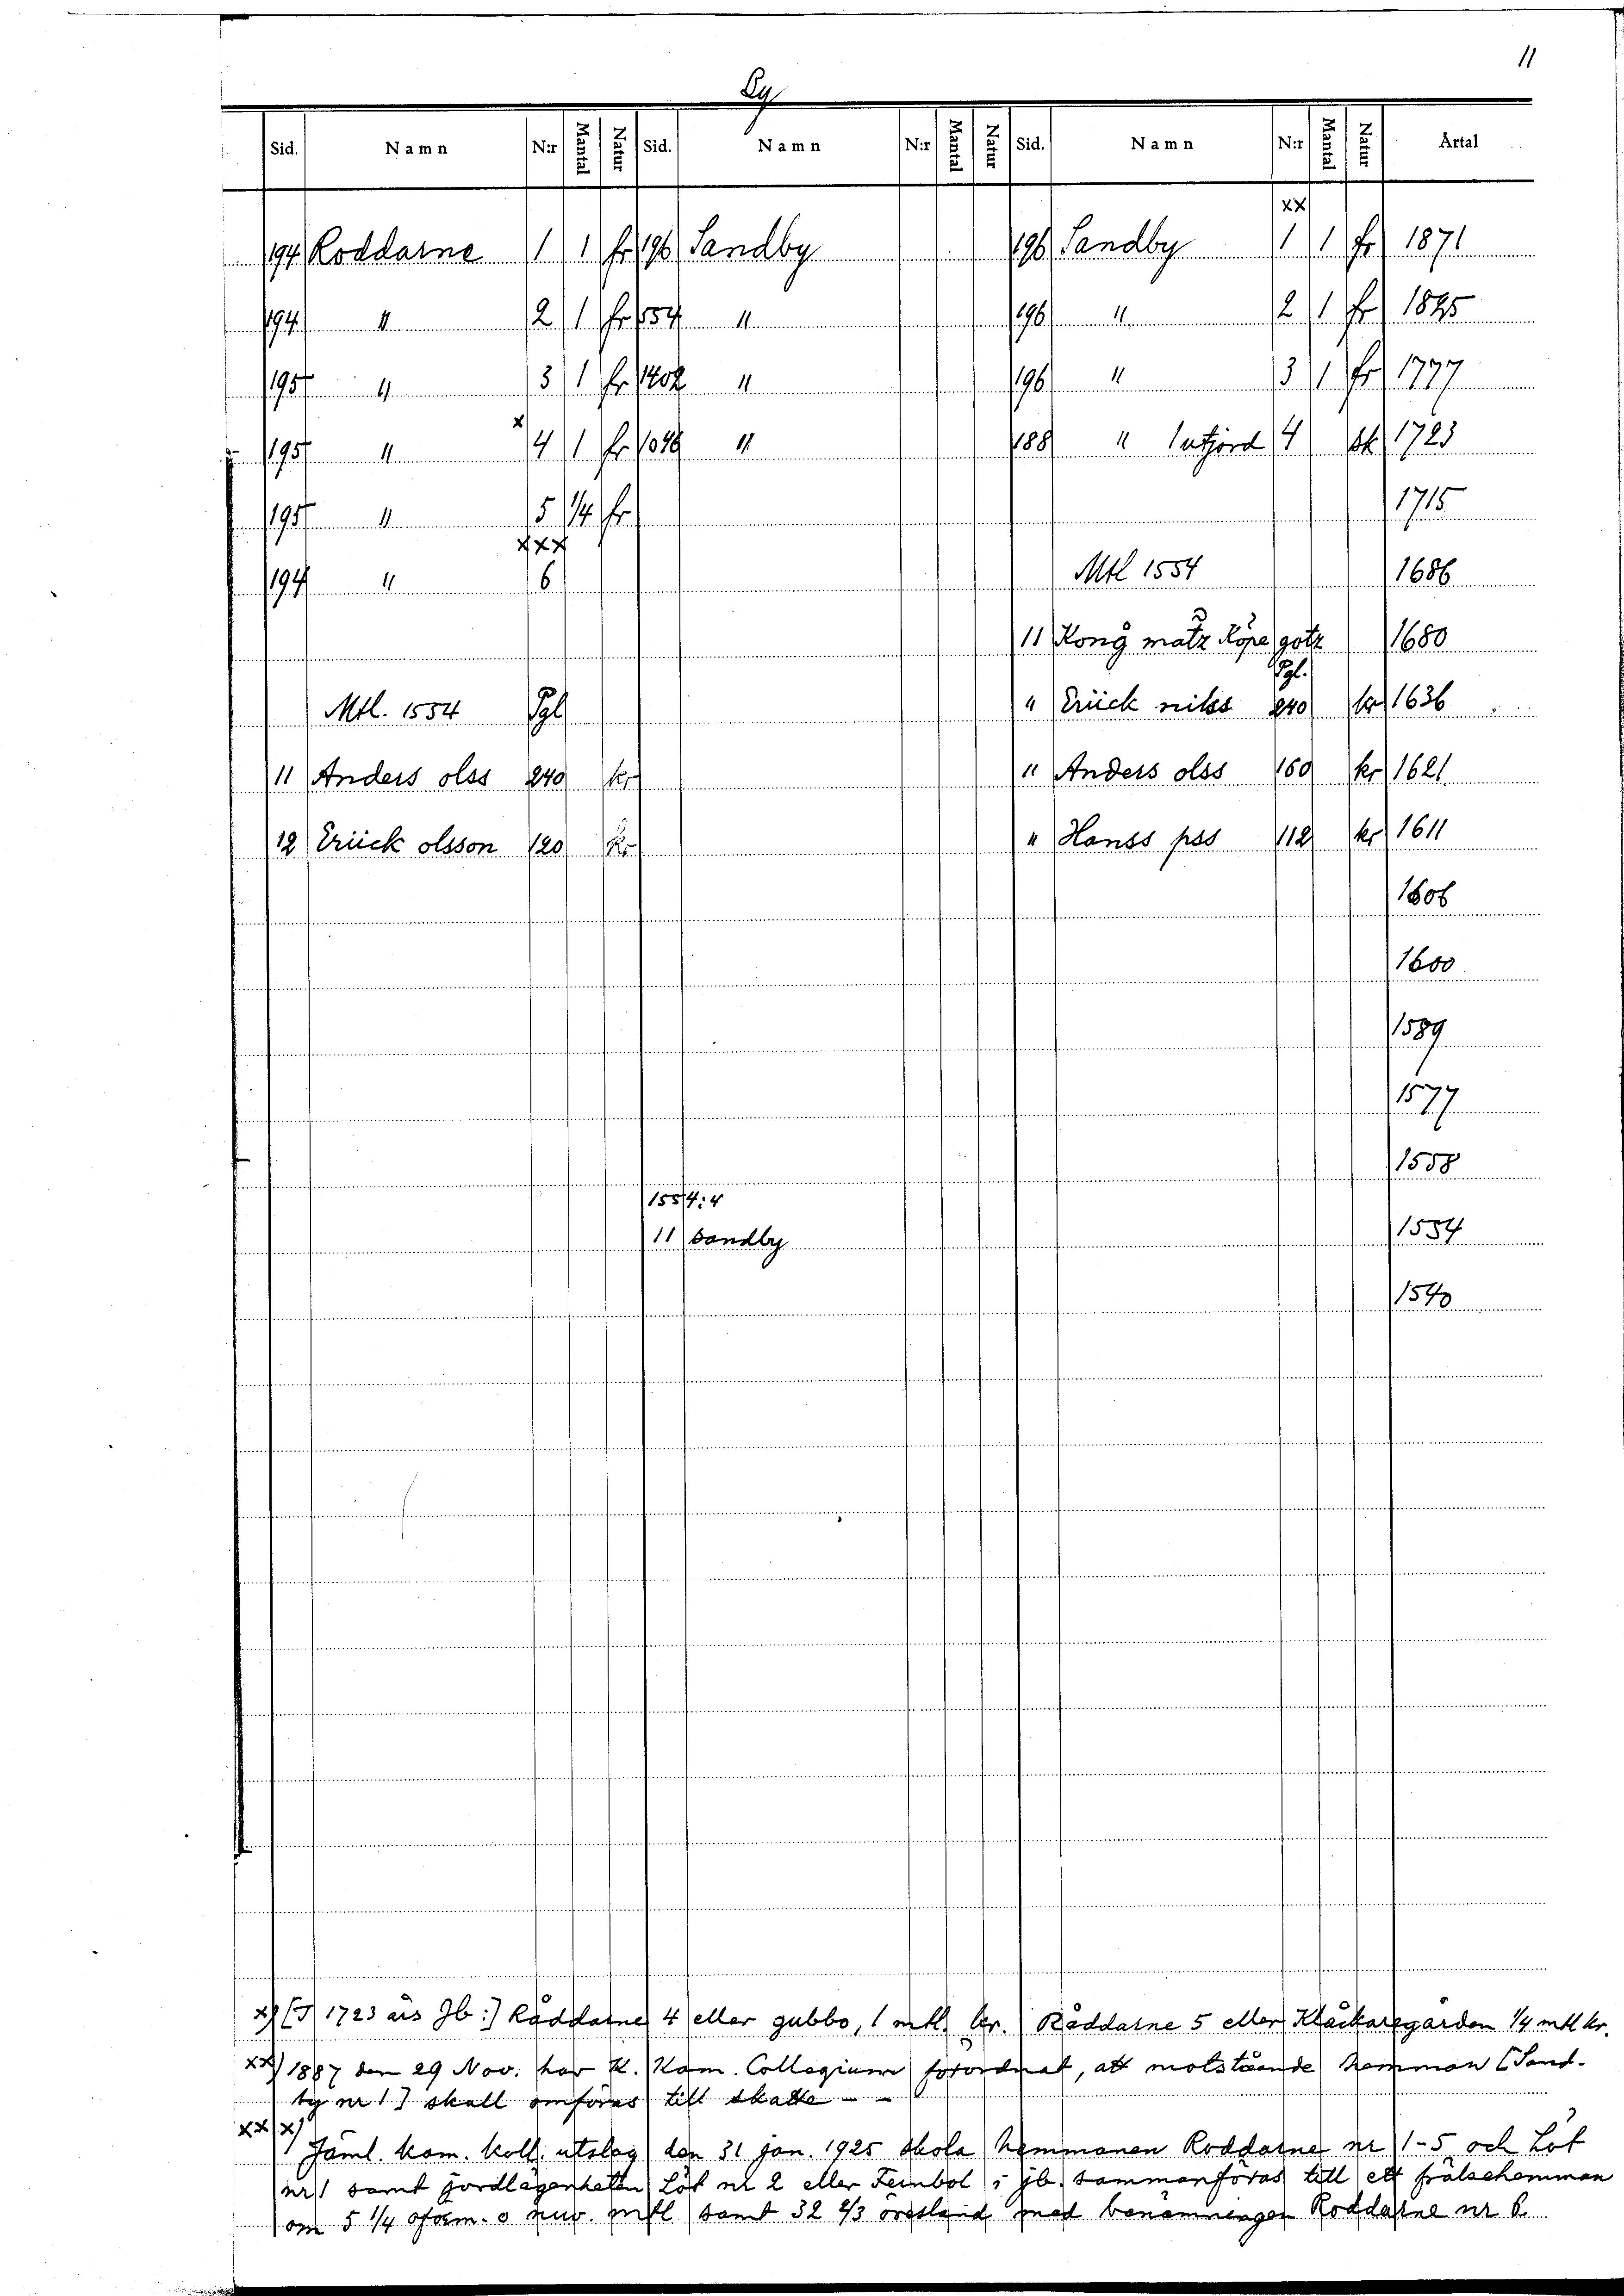 11
Ly
Sid. Namn N:r Mantal Natur Sid. Namn N:r Mantal Natur Sid. Namn N:r Mantal Natur Årtal
xx
194 Roddarne 1 1 fr 196 Sandby 196 Sandby 1 1 fr 1871
194 " 2 1 fr 554 " 196 " 2 1 fr 1825
195 " 3 1 fr 1402 " 196 " 3 1 fr 1777
x
195 " 4 1 fr 1046 " 188 " utjord 4 sk 1723
195 " 5 1/4 fr 1715
xxx
194 " 6 Mtl 1554 1686
11 Kong matz Köpe gotz 1680
Pgl.
Mtl. 1554 Pgl " Erück nilss 240 kr 1636
11 Anders olss 240 kr " Anders olss 160 kr 1621
12 Erück olsson 120 kr " Hanss pss 112 kr 1611
1606
1600
1589
1577
1558
1554:4
11 Sandby 1554
1540
x) [I 1723 års Jb:] Råddarne 4 eller gubbo, 1 mtl. kr. Råddarne 5 eller Klåckaregården 1/4 mtl kr.
xx) 1887 den 29 Nov. har K. Kam. Collegium förordnat, att motstående hemman [Sand-
by nr 1] skall omföras till skatte - -
xxx)
Jäml. kam. koll: utslag den 31 jan. 1925 skola hemmanen Roddarne nr 1-5 och Löt
nr 1 samt jordlägenheten Löt nr 2 eller Fembol i jb. sammanföras till ett frälsehemman
om 5 1/4 oförm. o nuv. mtl samt 32 2/3 öresland med benämningen Roddarne nr 6.